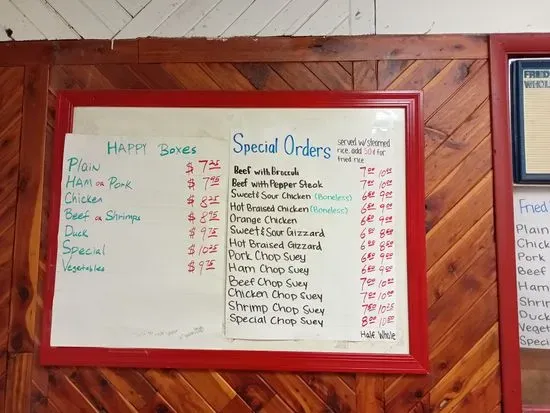 HAPPY Boxes
Plain $ 7.25
HAM or Pork $ 7.95
Chicken $ 8.25
Beef or Shrimps $ 8.95
Duck $ 9.75
Special $ 10.25
Vegetables $ 9.75
Special Orders
served w/steamed
rice, add 50¢ for
fried rice
Beef with Broccoli
Beef with Pepper Steak
Sweet & Sour Chicken (Boneless)
Hot Braised Chicken (Boneless)
Orange Chicken
Sweet & Sour Gizzard
Hot Braised Gizzard
Pork Chop Suey
Ham Chop Suey
Beef Chop Suey
Chicken Chop Suey
Shrimp Chop Suey
Special Chop Suey
Half Whole
FRIED
WHOL
Fried
Plain
Chick
Pork
Beef
Ham
Shrim
Duck
Veget
Speci